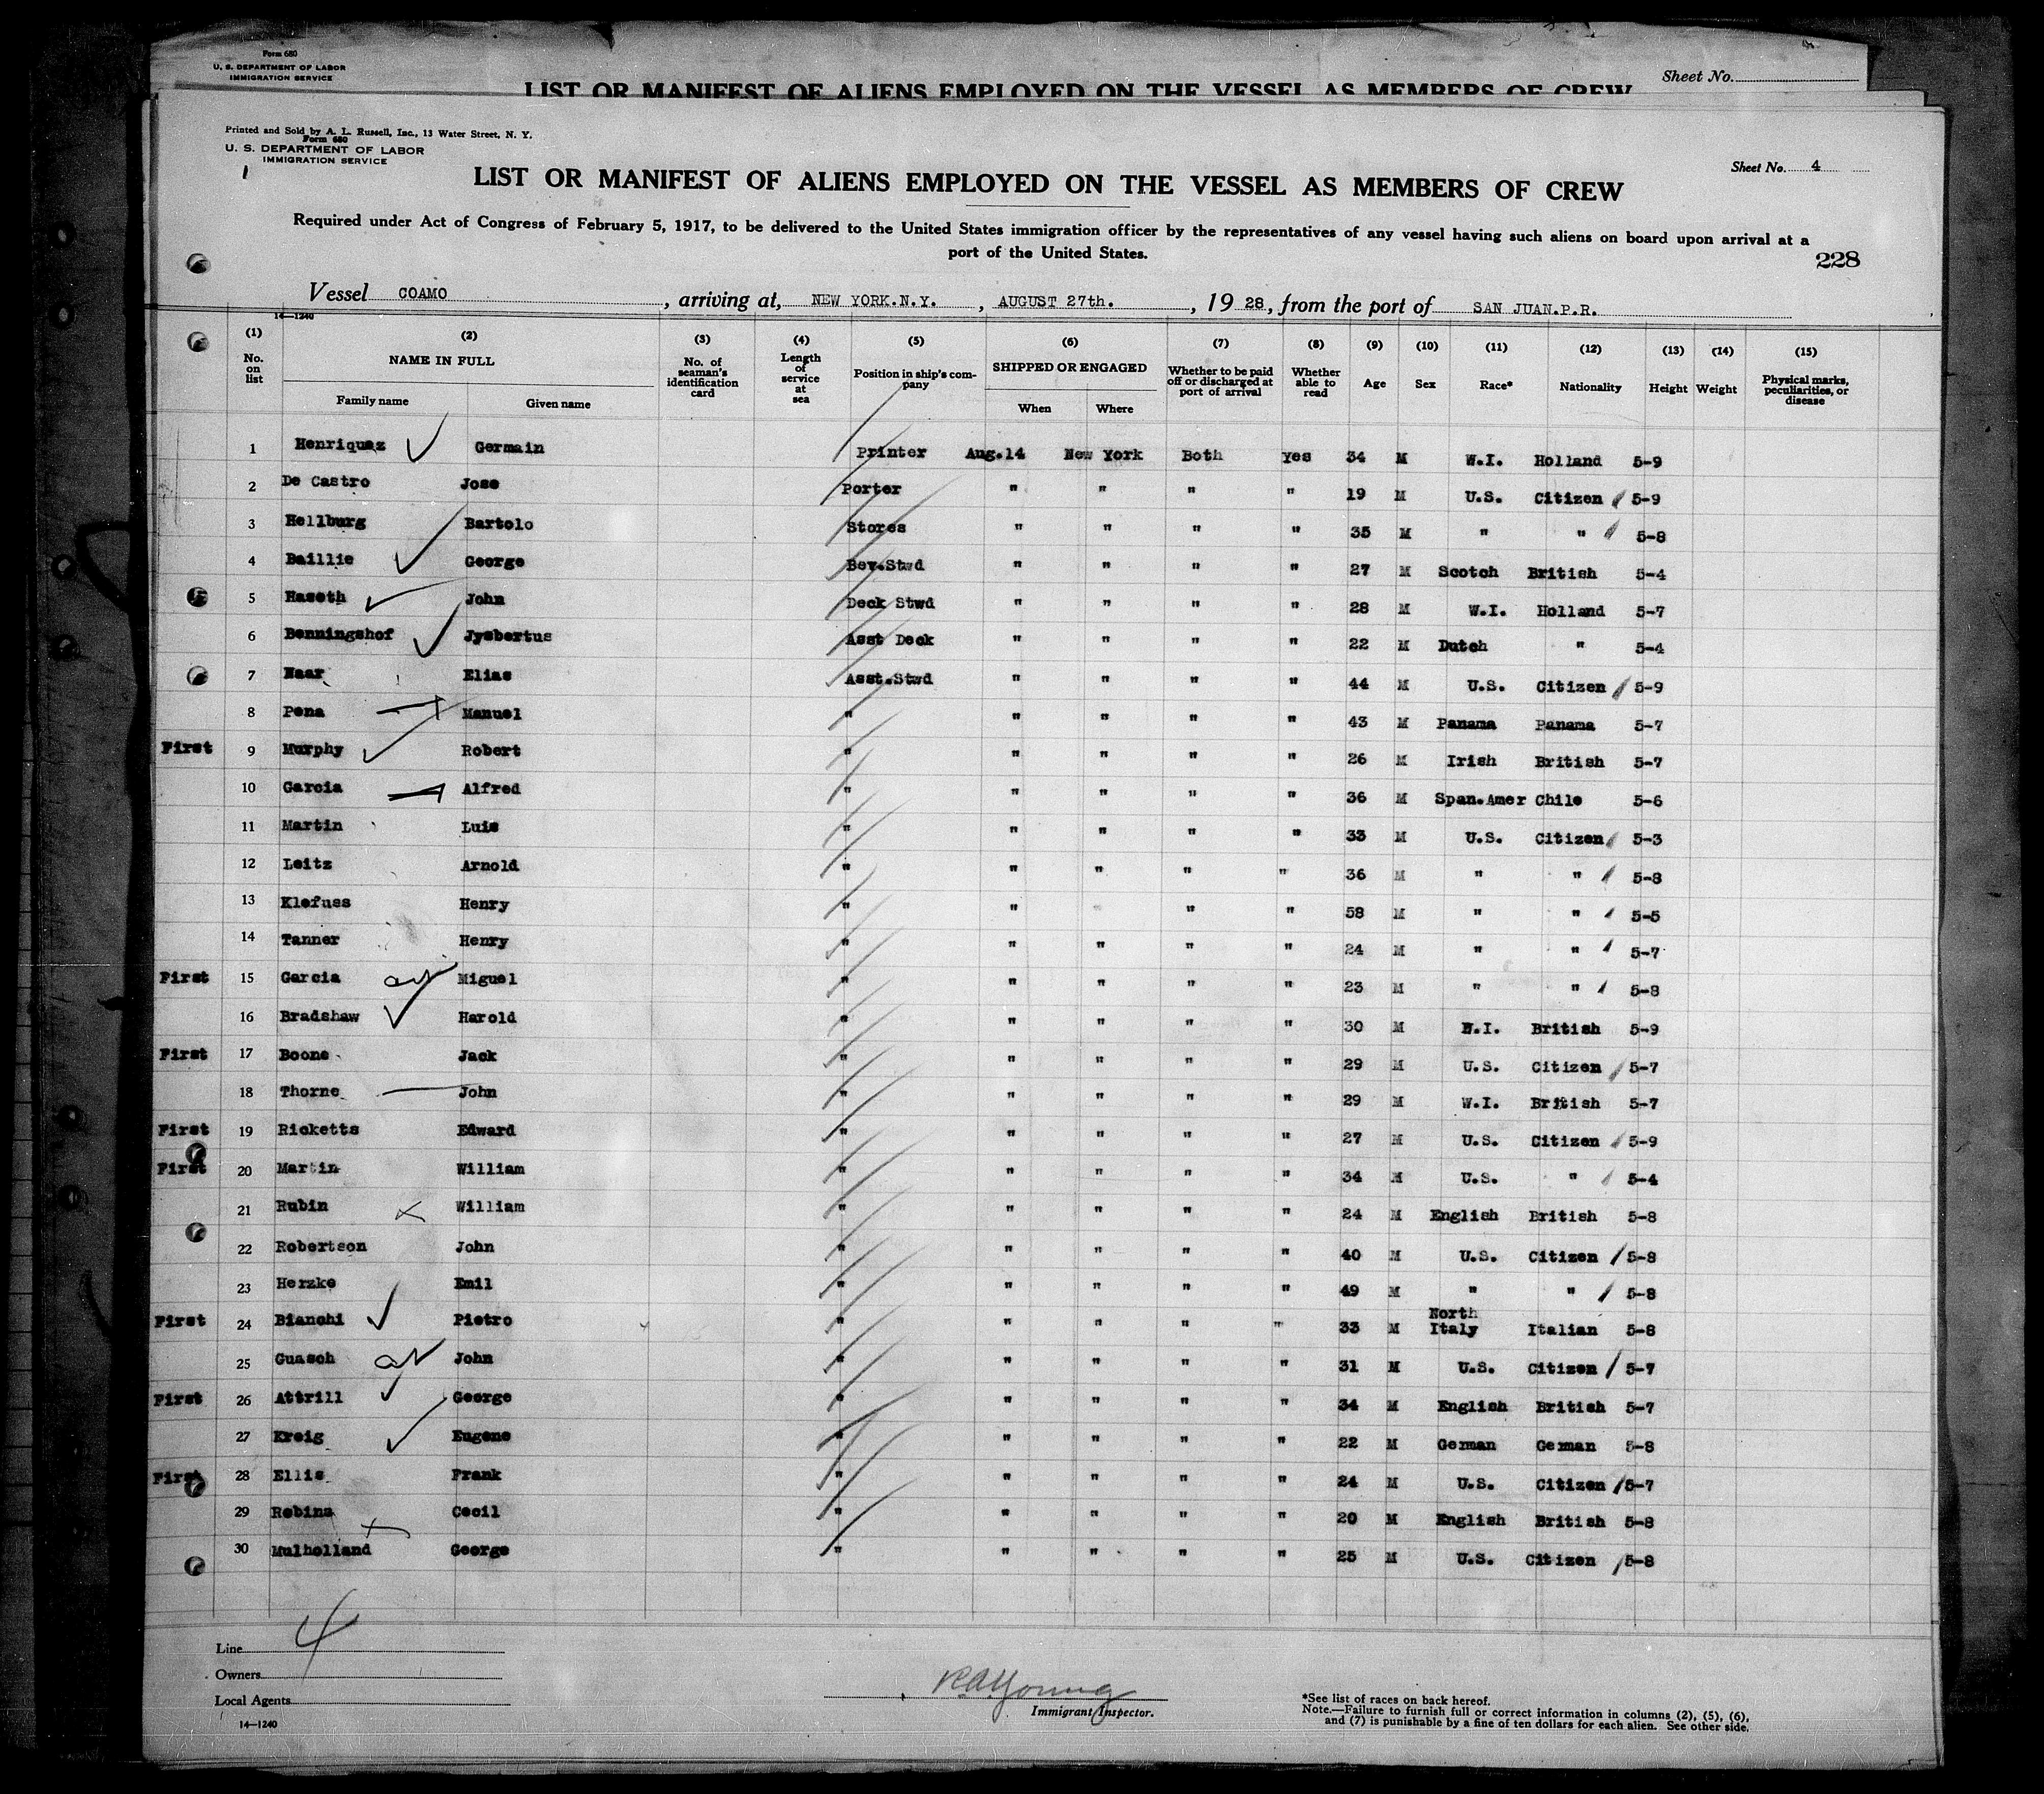 Form 680
U. S. DEPARTMENT OF LABOR
IMMIGRATION SERVICE
Sheet No.
LIST OR MANIFEST OF ALIENS EMPLOYED ON THE VESSEL AS MEMBERS OF CREW
Printed and Sold by A. L. Russell, Inc., 13 Water Street, N. Y.
Form 680
U. S. DEPARTMENT OF LABOR
IMMIGRATION SERVICE
Sheet No. 4
LIST OR MANIFEST OF ALIENS EMPLOYED ON THE VESSEL AS MEMBERS OF CREW
Required under Act of Congress of February 5, 1917, to be delivered to the United States immigration officer by the representatives of any vessel having such aliens on board upon arrival at a
port of the United States.
228
Vessel COAMO, arriving at, NEW YORK.N.Y., AUGUST 27th., 19 28, from the port of SAN JUAN.P.R.
14—1240
(1) (2) (3) (4) (5) (6) (7) (8) (9) (10) (11) (12) (13) (14) (15)
No. on list NAME IN FULL No. of seaman's identification card Length of service at sea Position in ship's company SHIPPED OR ENGAGED Whether to be paid off or discharged at port of arrival Whether able to read Age Sex Race* Nationality Height Weight Physical marks, peculiarities, or disease
Family name Given name When Where
1 Henriquaz Germain Printer Aug.14 New York Both Yes 34 M W.I. Holland 5-9
2 De Castro Jose Porter " " " " 19 M U.S. Citizen 5-9
3 Hellburg Bartolo Stores " " " " 35 M " " 5-8
4 Baillie George Bev.Stwd " " " " 27 M Scotch British 5-4
5 Haseth John Deck Stwd " " " " 28 M W.I. Holland 5-7
6 Benningshof Jysbertus Asst Deck " " " " 22 M Dutch " 5-4
7 Naar Elias Asst.Stwd " " " " 44 M U.S. Citizen 5-9
8 Pena Manuel " " " " " 43 M Panama Panama 5-7
First 9 Murphy Robert " " " " " 26 M Irish British 5-7
10 Garcia Alfred " " " " " 36 M Span.Amer Chile 5-6
11 Martin Luis " " " " " 33 M U.S. Citizen 5-3
12 Leitz Arnold " " " " " 36 M " " 5-8
13 Klefuss Henry " " " " 58 M " " 5-5
14 Tanner Henry " " " " " 24 M " " 5-7
First 15 Garcia Miguel " " " " " 23 M " " 5-8
16 Bradshaw Harold " " " " " 30 M W.I. British 5-9
First 17 Boone Jack " " " " " 29 M U.S. Citizen 5-7
18 Thorne John " " " " " 29 M W.I. British 5-7
First 19 Ricketts Edward " " " " " 27 M U.S. Citizen 5-9
First 20 Martin William " " " " " 34 M U.S. " 5-4
21 Rubin William " " " " " 24 M English British 5-8
22 Robertson John " " " " " 40 M U.S. Citizen 5-8
23 Herzke Emil " " " " " 49 M " " 5-8
First 24 Bianchi Pietro " " " " " 33 M North Italy Italian 5-8
25 Guasch John " " " " " 31 M U.S. Citizen 5-7
First 26 Attrill George " " " " " 34 M English British 5-7
27 Kreig Eugene " " " " " 22 M German German 5-8
First 28 Ellis Frank " " " " " 24 M U.S. Citizen 5-7
29 Robins Cecil " " " " " 20 M English British 5-8
30 Mulholland George " " " " " 25 M U.S. Citizen 5-8
4
Line
Owners
Local Agents
14—1240
R.A. Young
Immigrant Inspector.
*See list of races on back hereof.
Note.—Failure to furnish full or correct information in columns (2), (5), (6),
and (7) is punishable by a fine of ten dollars for each alien. See other side.